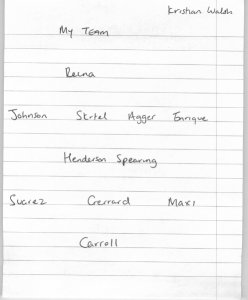 Kristian Walsh
My Team
Reina
Johnson Skrtel Agger Enrique
Henderson Spearing
Suarez Gerrard Maxi
Carroll